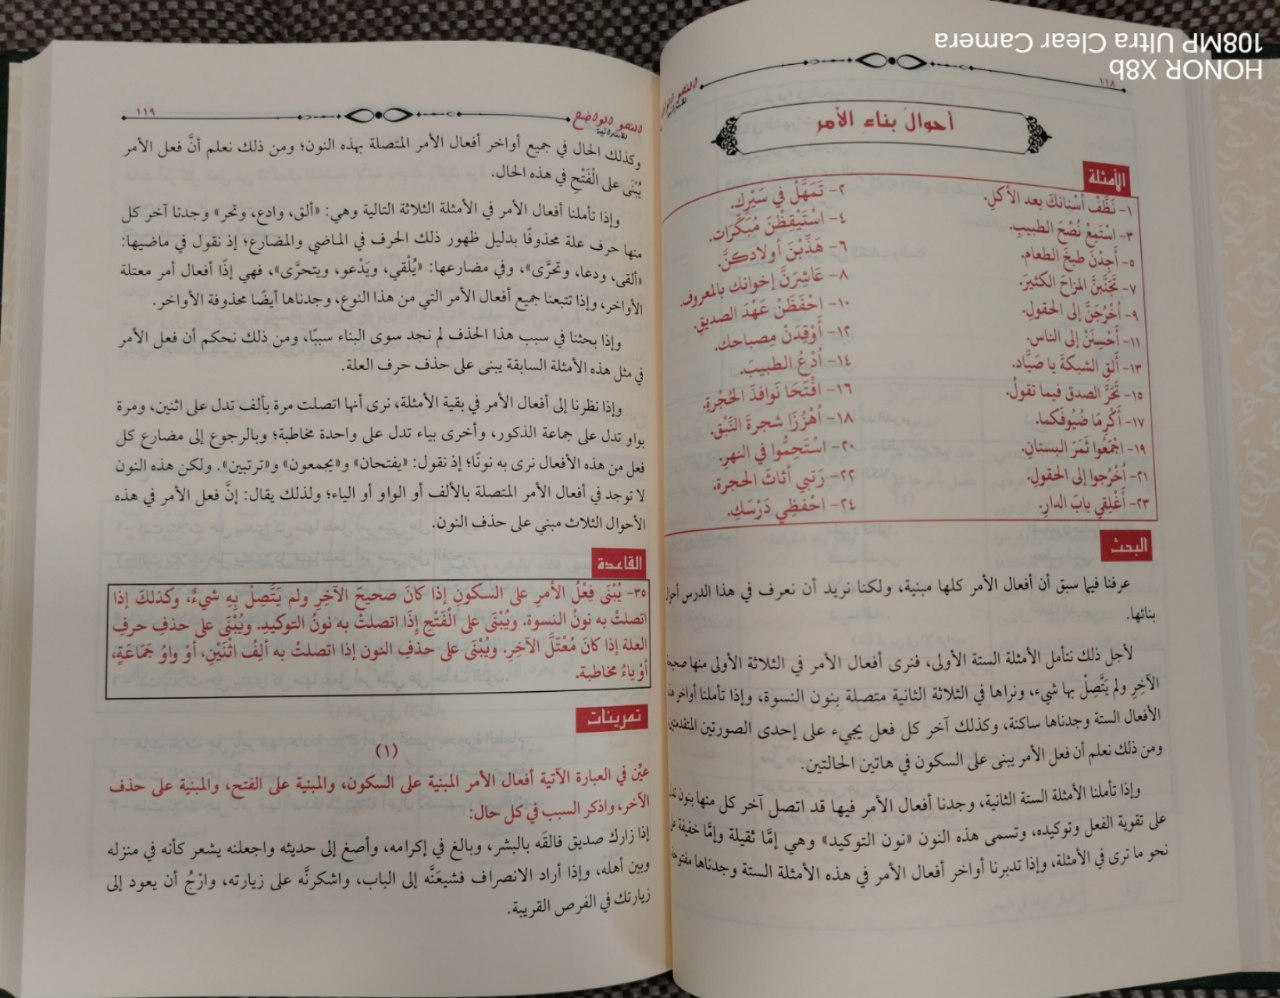 108MP Ultra Clear Camera
HONOR X8b
١١٨
النحو الواضح
أحوال بناء الأمر
الأمثلة
١- نَظِّفْ أسْنانكَ بعد الأكلِ. ٢- تَمَهَّلْ في سَيْرِك.
٣- اسْتَمِعْ نُصْحَ الطبيبِ. ٤- اسْتَيْقِظْنَ مُبَكِّرَات.
٥- أَجِدْنَ طبخَ الطعام. ٦- هَذِّبْنَ أولادكنَّ.
٧- تَجَنَّبَنَّ المزاحَ الكثيرَ. ٨- عَاشِرَنَّ إخوانك بالمعروف.
٩- اُخْرُجَنَّ إلى الحقولِ. ١٠- احْفَظَنْ عَهْدَ الصديقِ.
١١- أَحْسِنَنْ إلى الناس. ١٢- أَوْقِدَنْ مِصباحك.
١٣- أَلقِ الشبكةَ يا صَيَّاد. ١٤- اُدْعُ الطبيبَ.
١٥- تَحَرَّ الصدق فيما تقولُ. ١٦- افْتَحَا نَوافذَ الحُجْرةِ.
١٧- أَكْرِمَا ضُيُوفَكما. ١٨- اُهْزُزَا شجرةَ النَّبْقِ.
١٩- اجْمَعُوا ثَمَرَ البستانِ. ٢٠- اسْتَحِمُّوا في النهرِ.
٢١- اُخْرُجوا إلى الحقولِ. ٢٢- رَتبي أثاثَ الحجرة.
٢٣- أَغْلِقِي بابَ الدارِ. ٢٤- احْفظِي دَرْسَكِ.
البحث
عرفنا فيما سبق أن أفعال الأمر كلها مبنية، ولكنا نريد أن نعرف في هذا الدرس
بنائها.
لأجل ذلك نتأمل الأمثلة الستة الأولى، فنرى أفعال الأمر في الثلاثة الأولى منها صحيحة
الآخِرِ ولم يَتَّصِلْ بها شيء، ونراها في الثلاثة الثانية متصلة بنون النسوة، وإذا تأملنا أواخر
الأفعال الستة وجدناها ساكنة، وكذلك آخر كل فعل يجيء على إحدى الصورتين المتقدمتين
ومن ذلك نعلم أن فعل الأمر يبنى على السكون في هاتين الحالتين.
وإذا تأملنا الأمثلة الستة الثانية، وجدنا أفعال الأمر فيها قد اتصل آخر كل منها بنون
على تقوية الفعل وتوكيده، وتسمى هذه النون «نون التوكيد» وهي إمَّا ثقيلة وإمَّا خفيفة
نحو ما ترى في الأمثلة، وإذا تدبرنا أواخر أفعال الأمر في هذه الأمثلة الستة وجدناها مفتوحة
النحو الواضح
للابتدائية
١١٩
وكذلك الحال في جميع أواخر أفعال الأمر المتصلة بهذه النون؛ ومن ذلك نعلم أنَّ فعل الأمر
يُبْنَى على الْفَتْحِ في هذه الحال.
وإذا تأملنا أفعال الأمر في الأمثلة الثلاثة التالية وهي: «ألق، وادع، وتحر» وجدنا آخر كل
منها حرف علة محذوفًا بدليل ظهور ذلك الحرف في الماضي والمضارع؛ إذ نقول في ماضيها:
«ألقى، ودعا، وتحرَّى»، وفي مضارعها: «يُلْقي، ويَدْعو، ويتحرَّى»، فهي إذًا أفعال أمر معتلة
الأواخر، وإذا تتبعنا جميع أفعال الأمر التي من هذا النوع، وجدناها أيضًا محذوفة الأواخر.
وإذا بحثنا في سبب هذا الحذف لم نجد سوى البناء سببًا، ومن ذلك نحكم أن فعل الأمر
في مثل هذه الأمثلة السابقة يبنى على حذف حرف العلة.
وإذا نظرنا إلى أفعال الأمر في بقية الأمثلة، نرى أنها اتصلت مرة بألف تدل على اثنين، ومرة
بواو تدل على جماعة الذكور، وأخرى بياء تدل على واحدة مخاطبة؛ وبالرجوع إلى مضارع كل
فعل من هذه الأفعال نرى به نونًا؛ إذ نقول: «يفتحان» و«يجمعون» و«ترتبين». ولكن هذه النون
لا توجد في أفعال الأمر المتصلة بالألف أو الواو أو الياء؛ ولذلك يقال: إنَّ فعل الأمر في هذه
الأحوال الثلاث مبني على حذف النون.
القاعدة
٣٥- يُبْنَى فِعْلُ الأمرِ على السكونِ إذا كانَ صحيحَ الآخِرِ ولم يَتَّصِلْ بِهِ شيءٌ، وكذلكَ إذا
اتصلتْ به نونُ النسوة. ويُبْنَى على الْفَتْحِ إذَا اتصلتْ به نونُ التوكيدِ. ويُبْنَى على حذفِ حرفِ
العلة إذا كانَ مُعْتَلَّ الآخِرِ. ويُبْنَى على حذفِ النون إذا اتصلتْ به ألِفُ اثْنَيْنِ، أوْ واوُ جَمَاعَةٍ،
أوْ ياءُ مخاطبة.
تمرينات
(١)
عيِّن في العبارة الآتية أفعال الأمر المبنية على السكون، والمبنية على الفتح، والمبنية على حذف
الآخر، واذكر السبب في كل حال:
إذا زارك صديق فالقَه بالبشر، وبالغ في إكرامه، وأصغ إلى حديثه واجعلنه يشعر كأنه في منزله
وبين أهله، وإذا أراد الانصراف فشيعَنَّه إلى الباب، واشكرنَّه على زيارته، وارْجُ أن يعود إلى
زيارتك في الفرص القريبة.